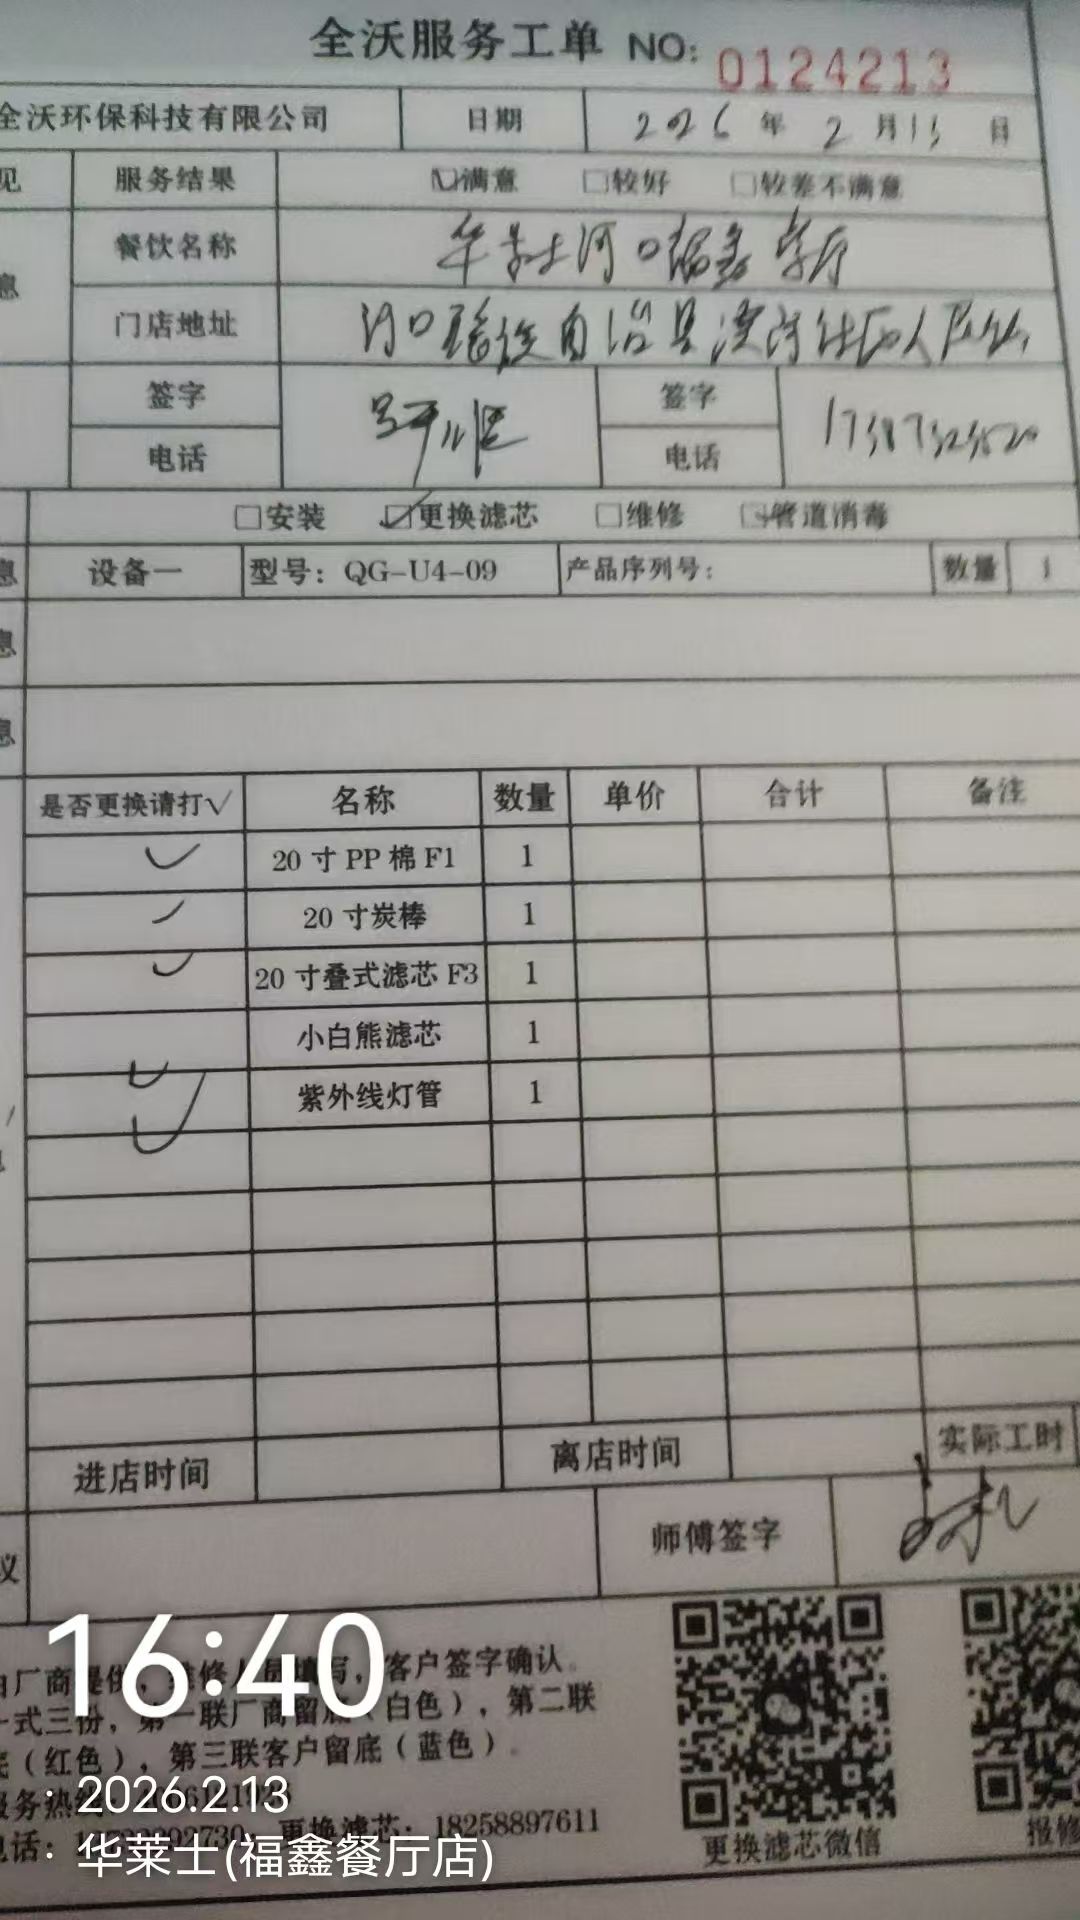 全沃服务工单 NO: 0124213
全沃环保科技有限公司 日期 2026 年 2 月 13 日
见 服务结果 ☑满意 □较好 □较差不满意
息 餐饮名称 华莱士河口福鑫餐厅
门店地址 河口瑶族自治县
签字 签字
电话 电话
□安装 ☑更换滤芯 □维修 □管道消毒
息 设备一 型号: QG-U4-09 产品序列号: 数量 1
息
息
是否更换请打√ 名称 数量 单价 合计 备注
✓ 20 寸 PP 棉 F1 1
✓ 20 寸炭棒 1
✓ 20 寸叠式滤芯 F3 1
✓ 小白熊滤芯 1
✓ 紫外线灯管 1
进店时间 离店时间 实际工时
议 师傅签字
16:40
由厂商提供, 维修人员填写, 客户签字确认。
一式三份, 第一联厂商留底(白色), 第二联
底(红色), 第三联客户留底(蓝色)。
服务热线:
2026.2.13
电话: 更换滤芯: 18258897611
华莱士(福鑫餐厅店)
更换滤芯微信 报修